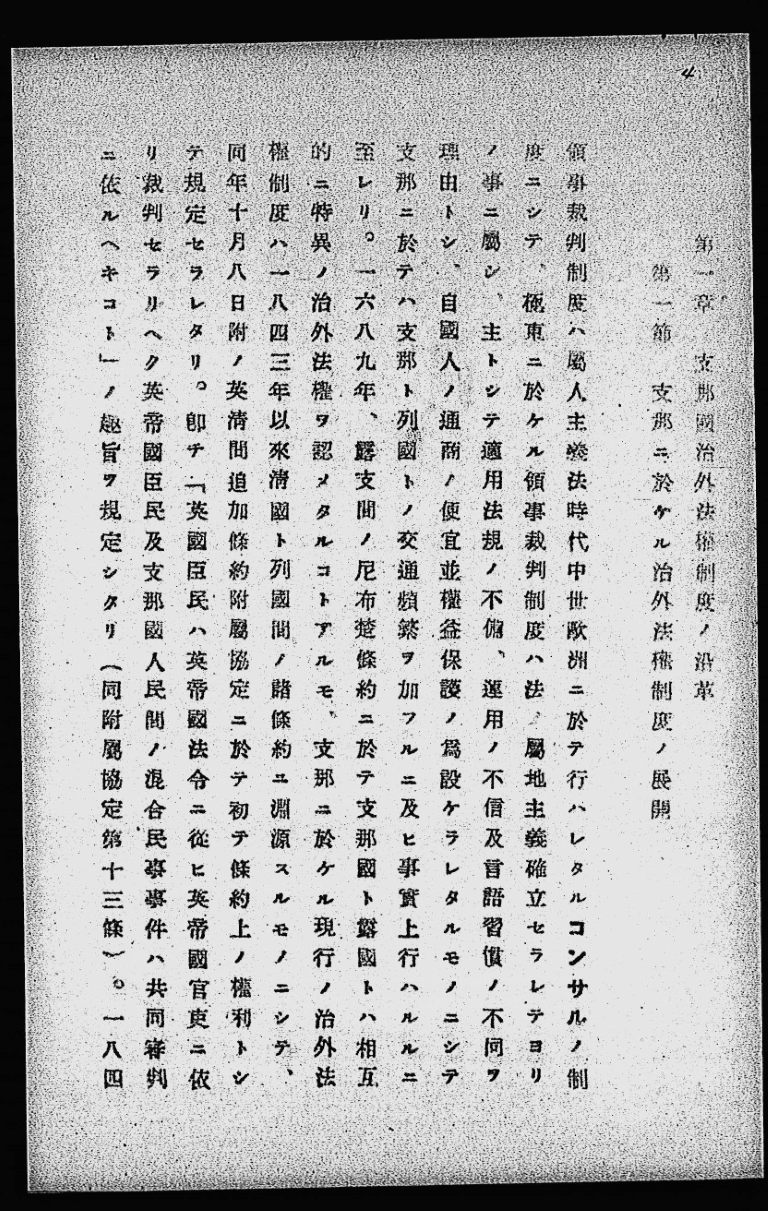 4
第一章 支那國治外法權制度ノ沿革
第一節 支那ニ於ケル治外法權制度ノ展開
領事裁判制度ハ屬人主義法時代中世歐洲ニ於テ行ハレタルコンサルノ制
度ニシテ、極東ニ於ケル領事裁判制度ハ法ノ屬地主義確立セラレテヨリ
ノ事ニ屬シ、主トシテ適用法規ノ不備、運用ノ不信及言語習慣ノ不同ヲ
理由トシ、自國人ノ通商ノ便宜並權益保護ノ爲設ケラレタルモノニシテ
支那ニ於テハ支那ト列國トノ交通頻繁ヲ加フルニ及ヒ事實上行ハルルニ
至レリ。一六八九年、露支間ノ尼布楚條約ニ於テ支那國ト露國トハ相互
的ニ特異ノ治外法權ヲ認メタルコトアルモ、支那ニ於ケル現行ノ治外法
權制度ハ一八四三年以來淸國ト列國間ノ諸條約ニ淵源スルモノニシテ、
同年十月八日附ノ英淸間追加條約附屬協定ニ於テ初テ條約上ノ權利トシ
テ規定セラレタリ。卽チ「英國臣民ハ英帝國法令ニ從ヒ英帝國官吏ニ依
リ裁判セラリヘク英帝國臣民及支那國人民間ノ混合民事事件ハ共同審判
ニ依ルヘキコト」ノ趣旨ヲ規定シタリ（同附屬協定第十三條）。一八四